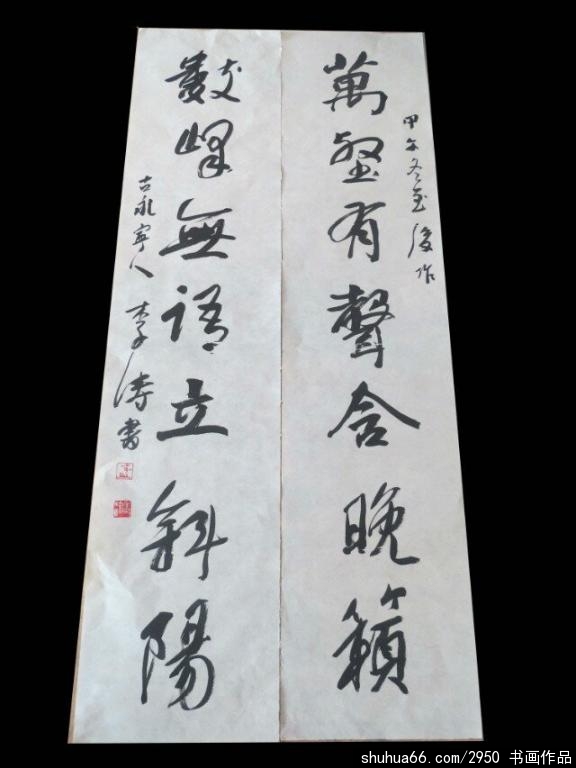 甲午冬至後作
萬壑有聲含晚籟
數峰無語立斜陽
古永寧人 李涛書
shuhua66.com/2950 书画作品